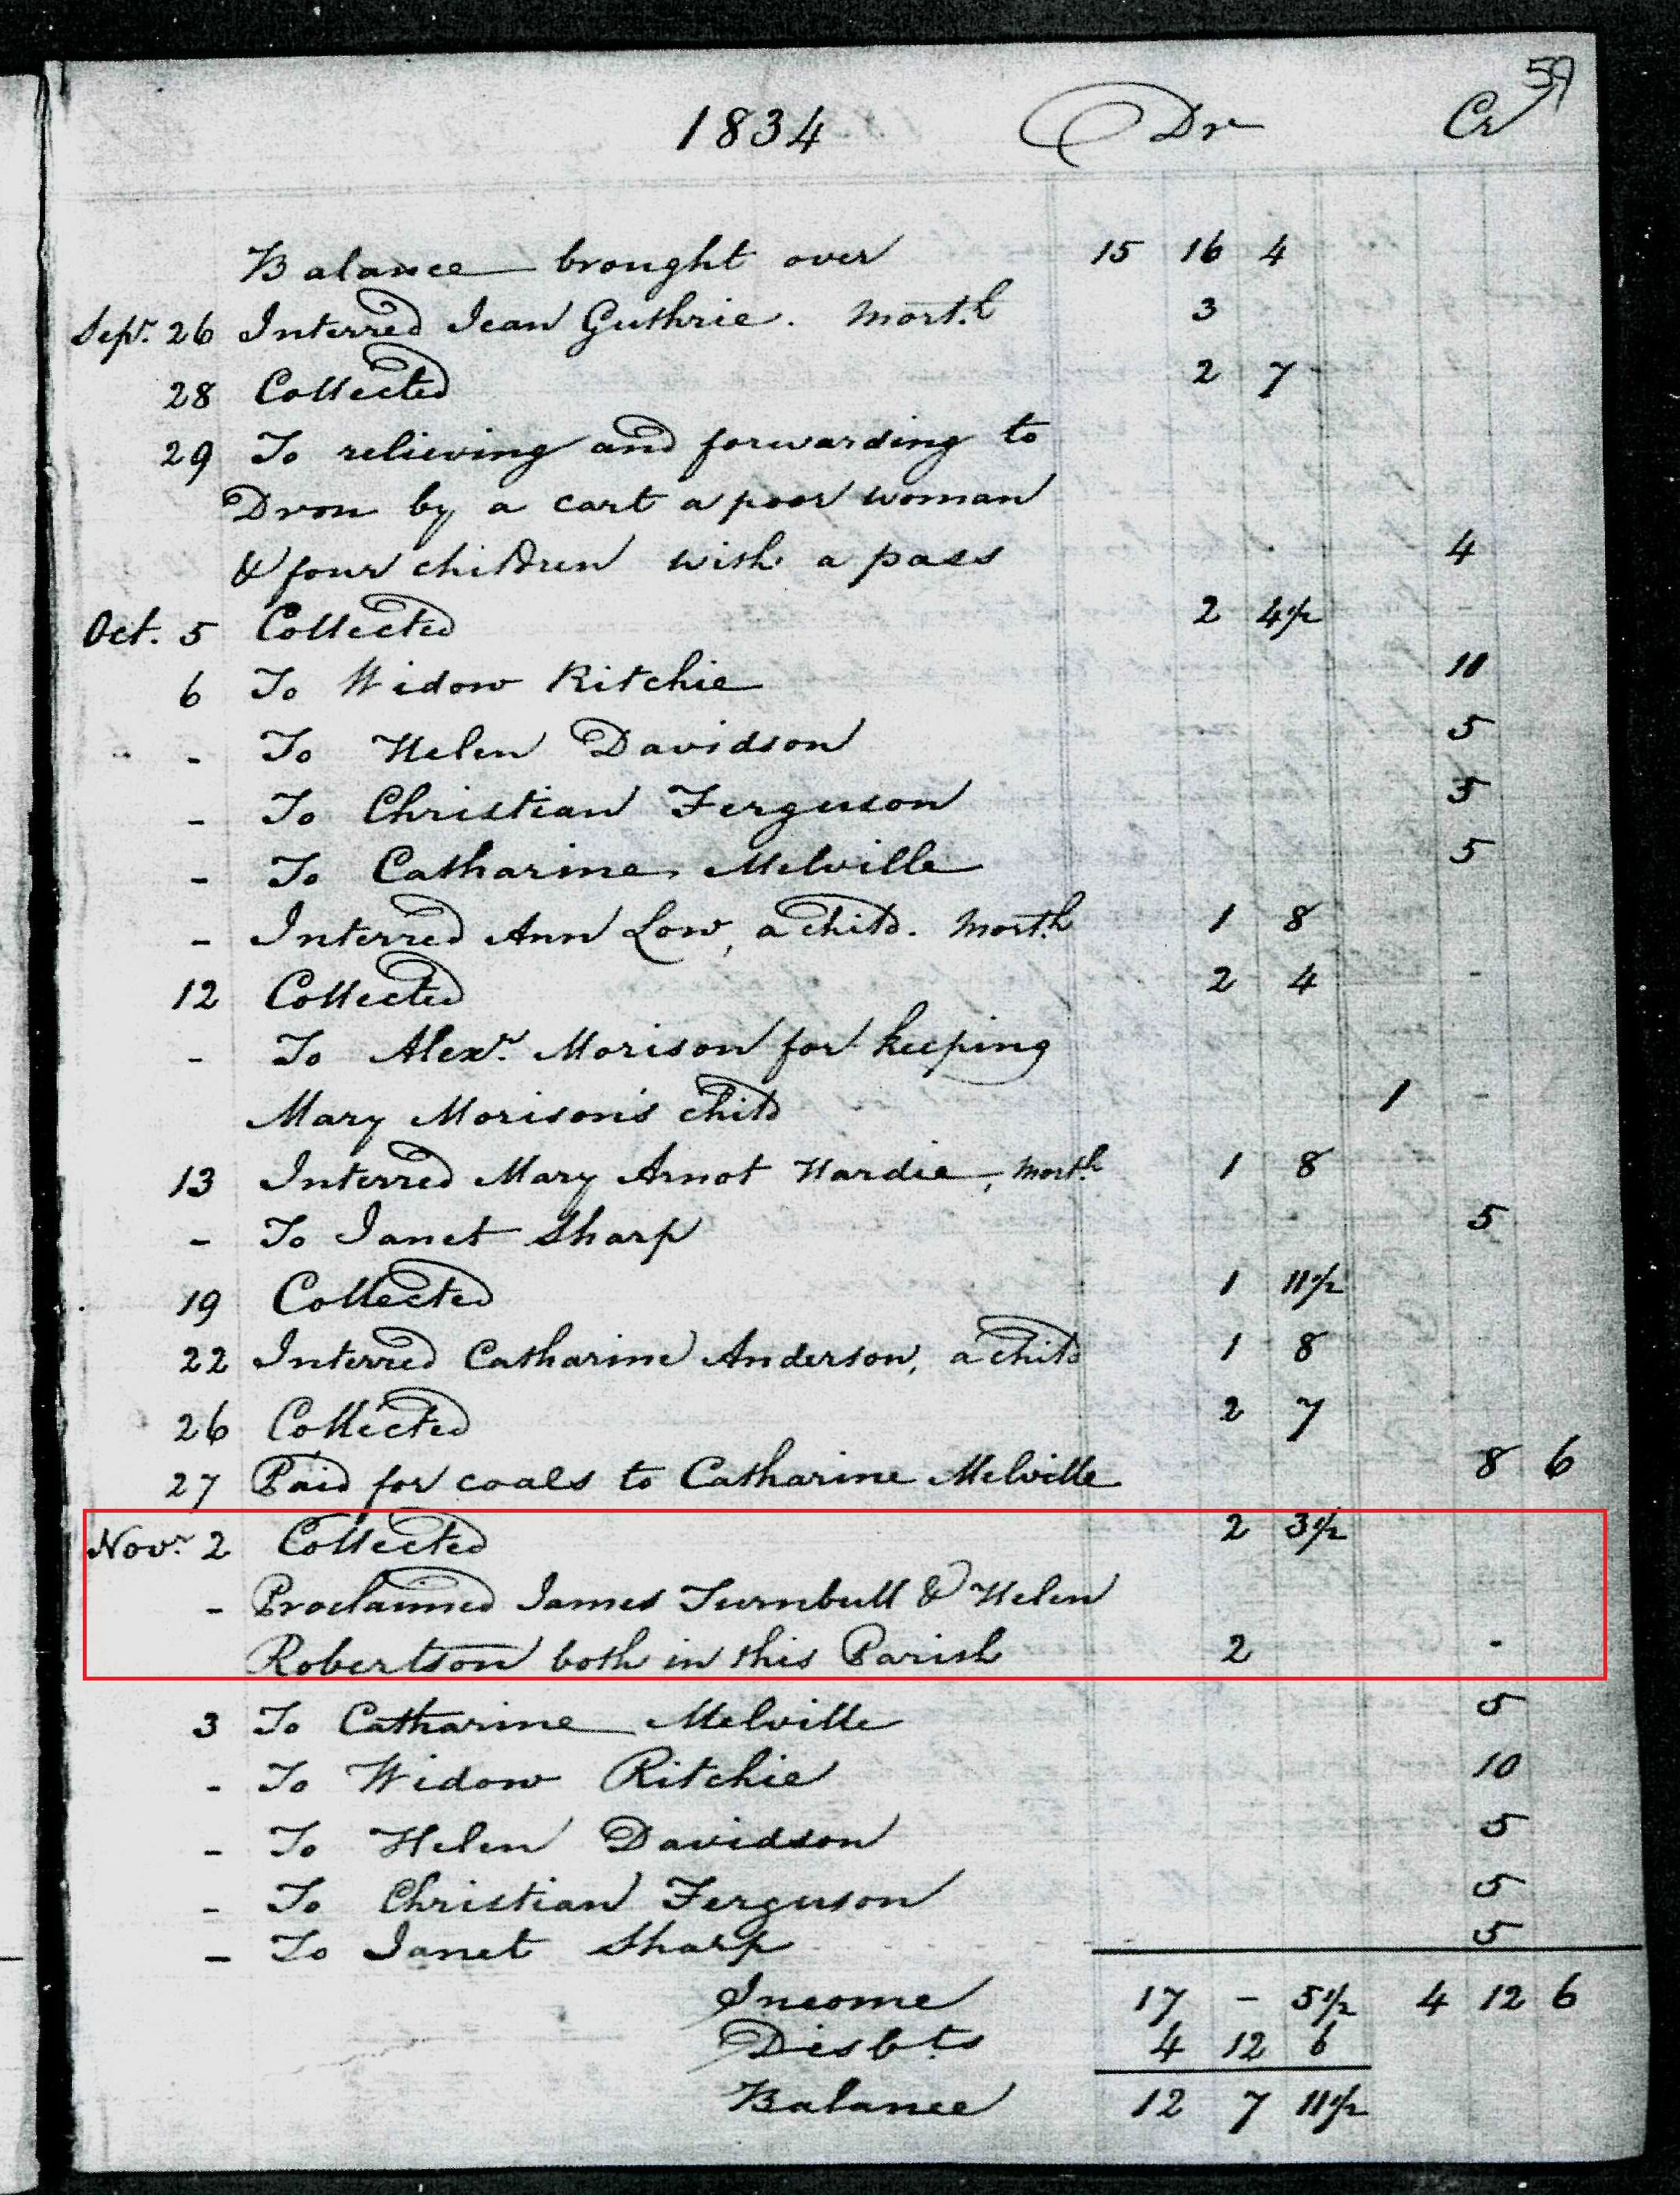 59
1834 Dr Cr
Balance brought over 15 16 4
Sepr. 26 Interred Jean Guthrie. Mort.h 3
28 Collected 2 7
29 To relieving and forwarding to
Dron by a cart a poor woman
& four children with a pass 4
Oct. 5 Collected 2 4½
6 To Widow Ritchie 10
- To Helen Davidson 5
- To Christian Ferguson 5
- To Catharine Melville 5
- Interred Ann Low, a child. Mort.h 1 8
12 Collected 2 4 -
- To Alexr. Morison for keeping
Mary Morison's child 1 -
13 Interred Mary Arnot Hardie, Mort.h 1 8
- To Janet Sharp 5
19 Collected 1 11½
22 Interred Catharine Anderson, a child 1 8
26 Collected 2 7
27 Paid for coals to Catharine Melville 8 6
Novr. 2 Collected 2 3½
- Proclaimed James Turnbull & Helen
Robertson both in this Parish 2 -
3 To Catharine Melville 5
- To Widow Ritchie 10
- To Helen Davidson 5
- To Christian Ferguson 5
- To Janet Sharp 5
Income 17 - 5½ 4 12 6
Disbts 4 12 6
Balance 12 7 11½